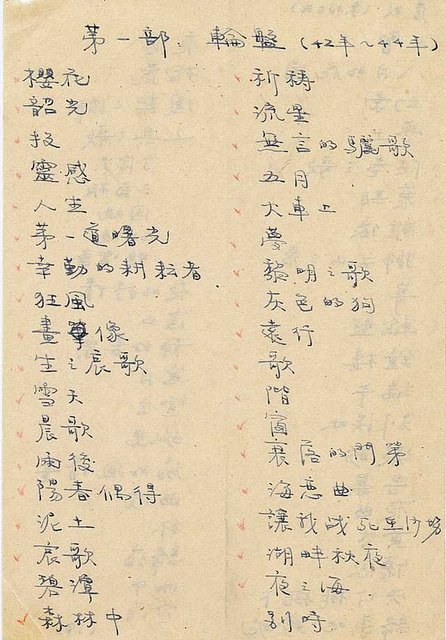 第一部. 輪盤 (42年~44年)
櫻花
韶光
投
靈感
人生
第一道曙光
辛勤的耕耘者
狂風
畫像
生之哀歌
雪天
晨歌
雨後
陽春偶得
泥土
哀歌
碧潭
森林中
祈禱
流星
無言的驪歌
五月
火車上
夢
黎明之歌
灰色的狗
遠行
歌
階
窗
衰落的門第
海戀曲
讓我戰死在沙場
湖畔秋夜
夜之海
別時